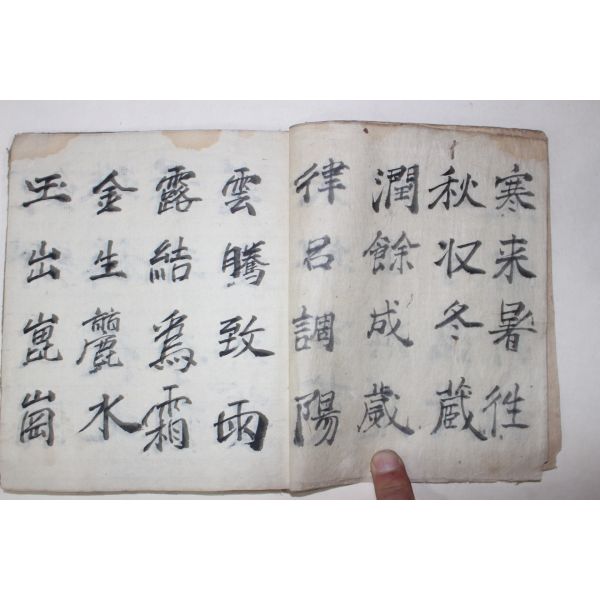 寒来暑徃
秋収冬蔵
潤餘成歳
律呂調陽
雲騰致雨
露結為霜
金生麗水
玉出崑崗